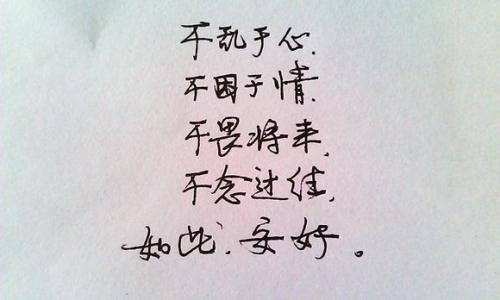 不乱于心.
不困于情.
不畏将来.
不念过往.
如此.安好。